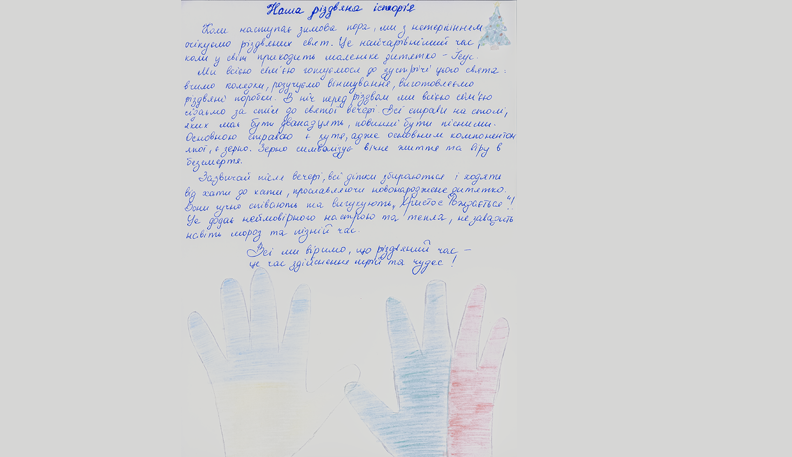 Наша різдвяна історія
Коли наступає зимова пора, ми з нетерпінням
очікуємо різдвяних свят. Це найчарівніший час,
коли у світ приходить маленьке дитятко - Ісус.
Ми всією сім'єю готуємося до зустрічі цього свята:
вчимо колядки, розучуємо віншування, виготовляємо
різдвяні поробки. В ніч перед різдвом ми всією сім'єю
сідаємо за стіл до святої вечері. Всі страви на столі,
яких має бути дванадцять, повинні бути пісними.
Основною стравою є кутя, адже основним компонентом
якої, є зерно. Зерно символізує вічне життя та віру в
безсмертя.
Зазвичай після вечері, всі дітки збираються і ходять
від хати до хати, прославляючи новонароджене дитятко.
Вони гучно співають та вигукують, "Христос Рождається"!
Це додає неймовірного настрою та тепла, не зважають
навіть мороз та пізній час.
Всі ми віримо, що різдвяний час -
це час здійснення мрій та чудес!